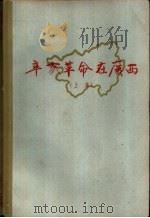 辛亥革命在广西
上集